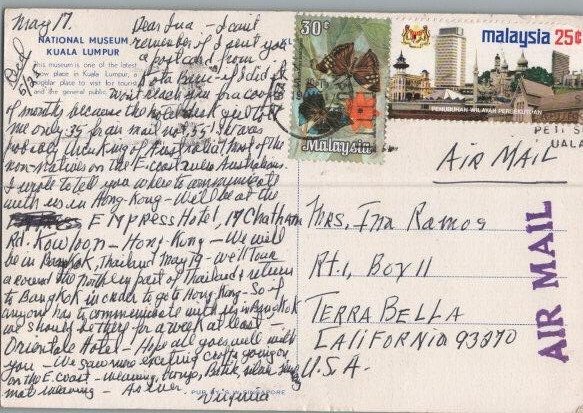 May 17.
Rec'd
5/23
NATIONAL MUSEUM
KUALA LUMPUR
This museum is one of the latest
show place in Kuala Lumpur, a
popular place to visit for
and the general public.
Dear Ina – I can't
remember if I sent you
a postcard from
Kota Baru – if I did it
won't reach you for a couple
of months because the hotel desk girl told
me only 35 for air mail not 55. She was
probably thinking of Australia. Most of the
non-natives on the E. coast were Australians.
I wrote to tell you where to communicate
with us in Hong-Kong – We'll be at the
EMPRESS Hotel, 17 Chatham
Rd. Kowloon – Hong-Kong – We will
be in Bangkok, Thailand May 19 – we'll tour
around the northern part of Thailand & return
to Bangkok in order to go to Hong Kong – So if
anyone has to communicate with us in Bangkok
we should be there for a week at least –
Orientale Hotel – Hope all goes well with
you – We saw more exciting crafts going on
on the E. coast – Weaving, Batik,
mat weaving – As ever
Virginia
30¢
Malaysia
malaysia 25¢
PENUBUHAN WILAYAH PERSEKUTUAN
AIR MAIL
Mrs. Ina Ramos
Rt. 1, Box 11
TERRA BELLA
CALIFORNIA 93270
U.S.A.
AIR MAIL
SINGAPORE